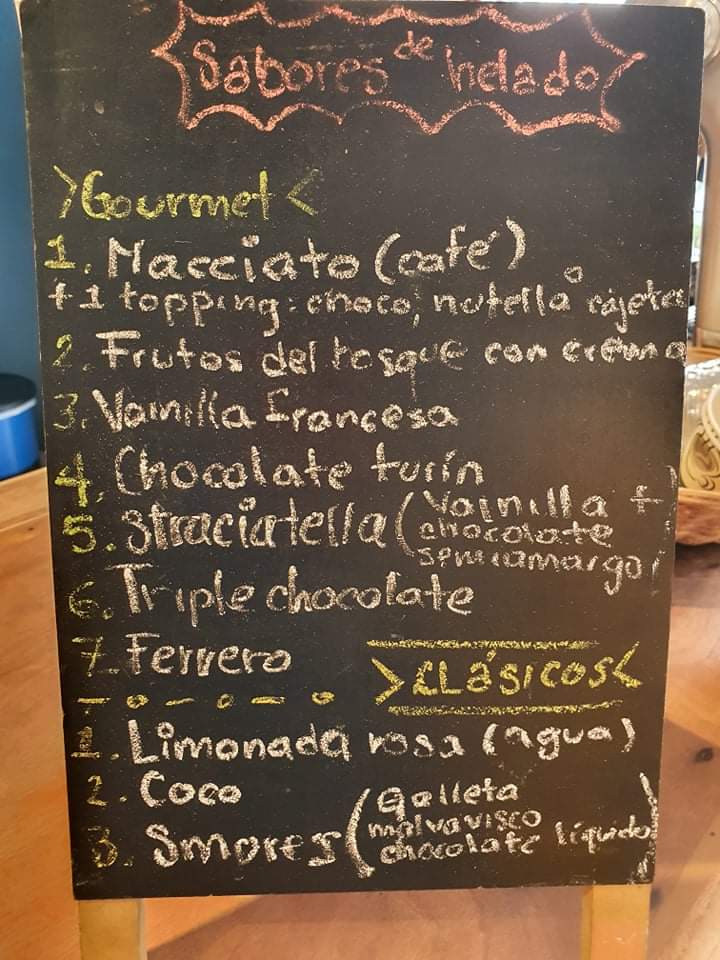 Sabores de helado
>Gourmet<
1. Macciato (café)
+1 topping: choco, nutella o cajeta
2. Frutos del bosque con crema
3. Vainilla francesa
4. Chocolate turín
5. Straciatella (Vainilla +
chocolate
semiamargo)
6. Triple chocolate
7. Ferrero
>CLÁSICOS<
1. Limonada rosa (agua)
2. Coco
3. Smores (Galleta
malvavisco
chocolate líquido)